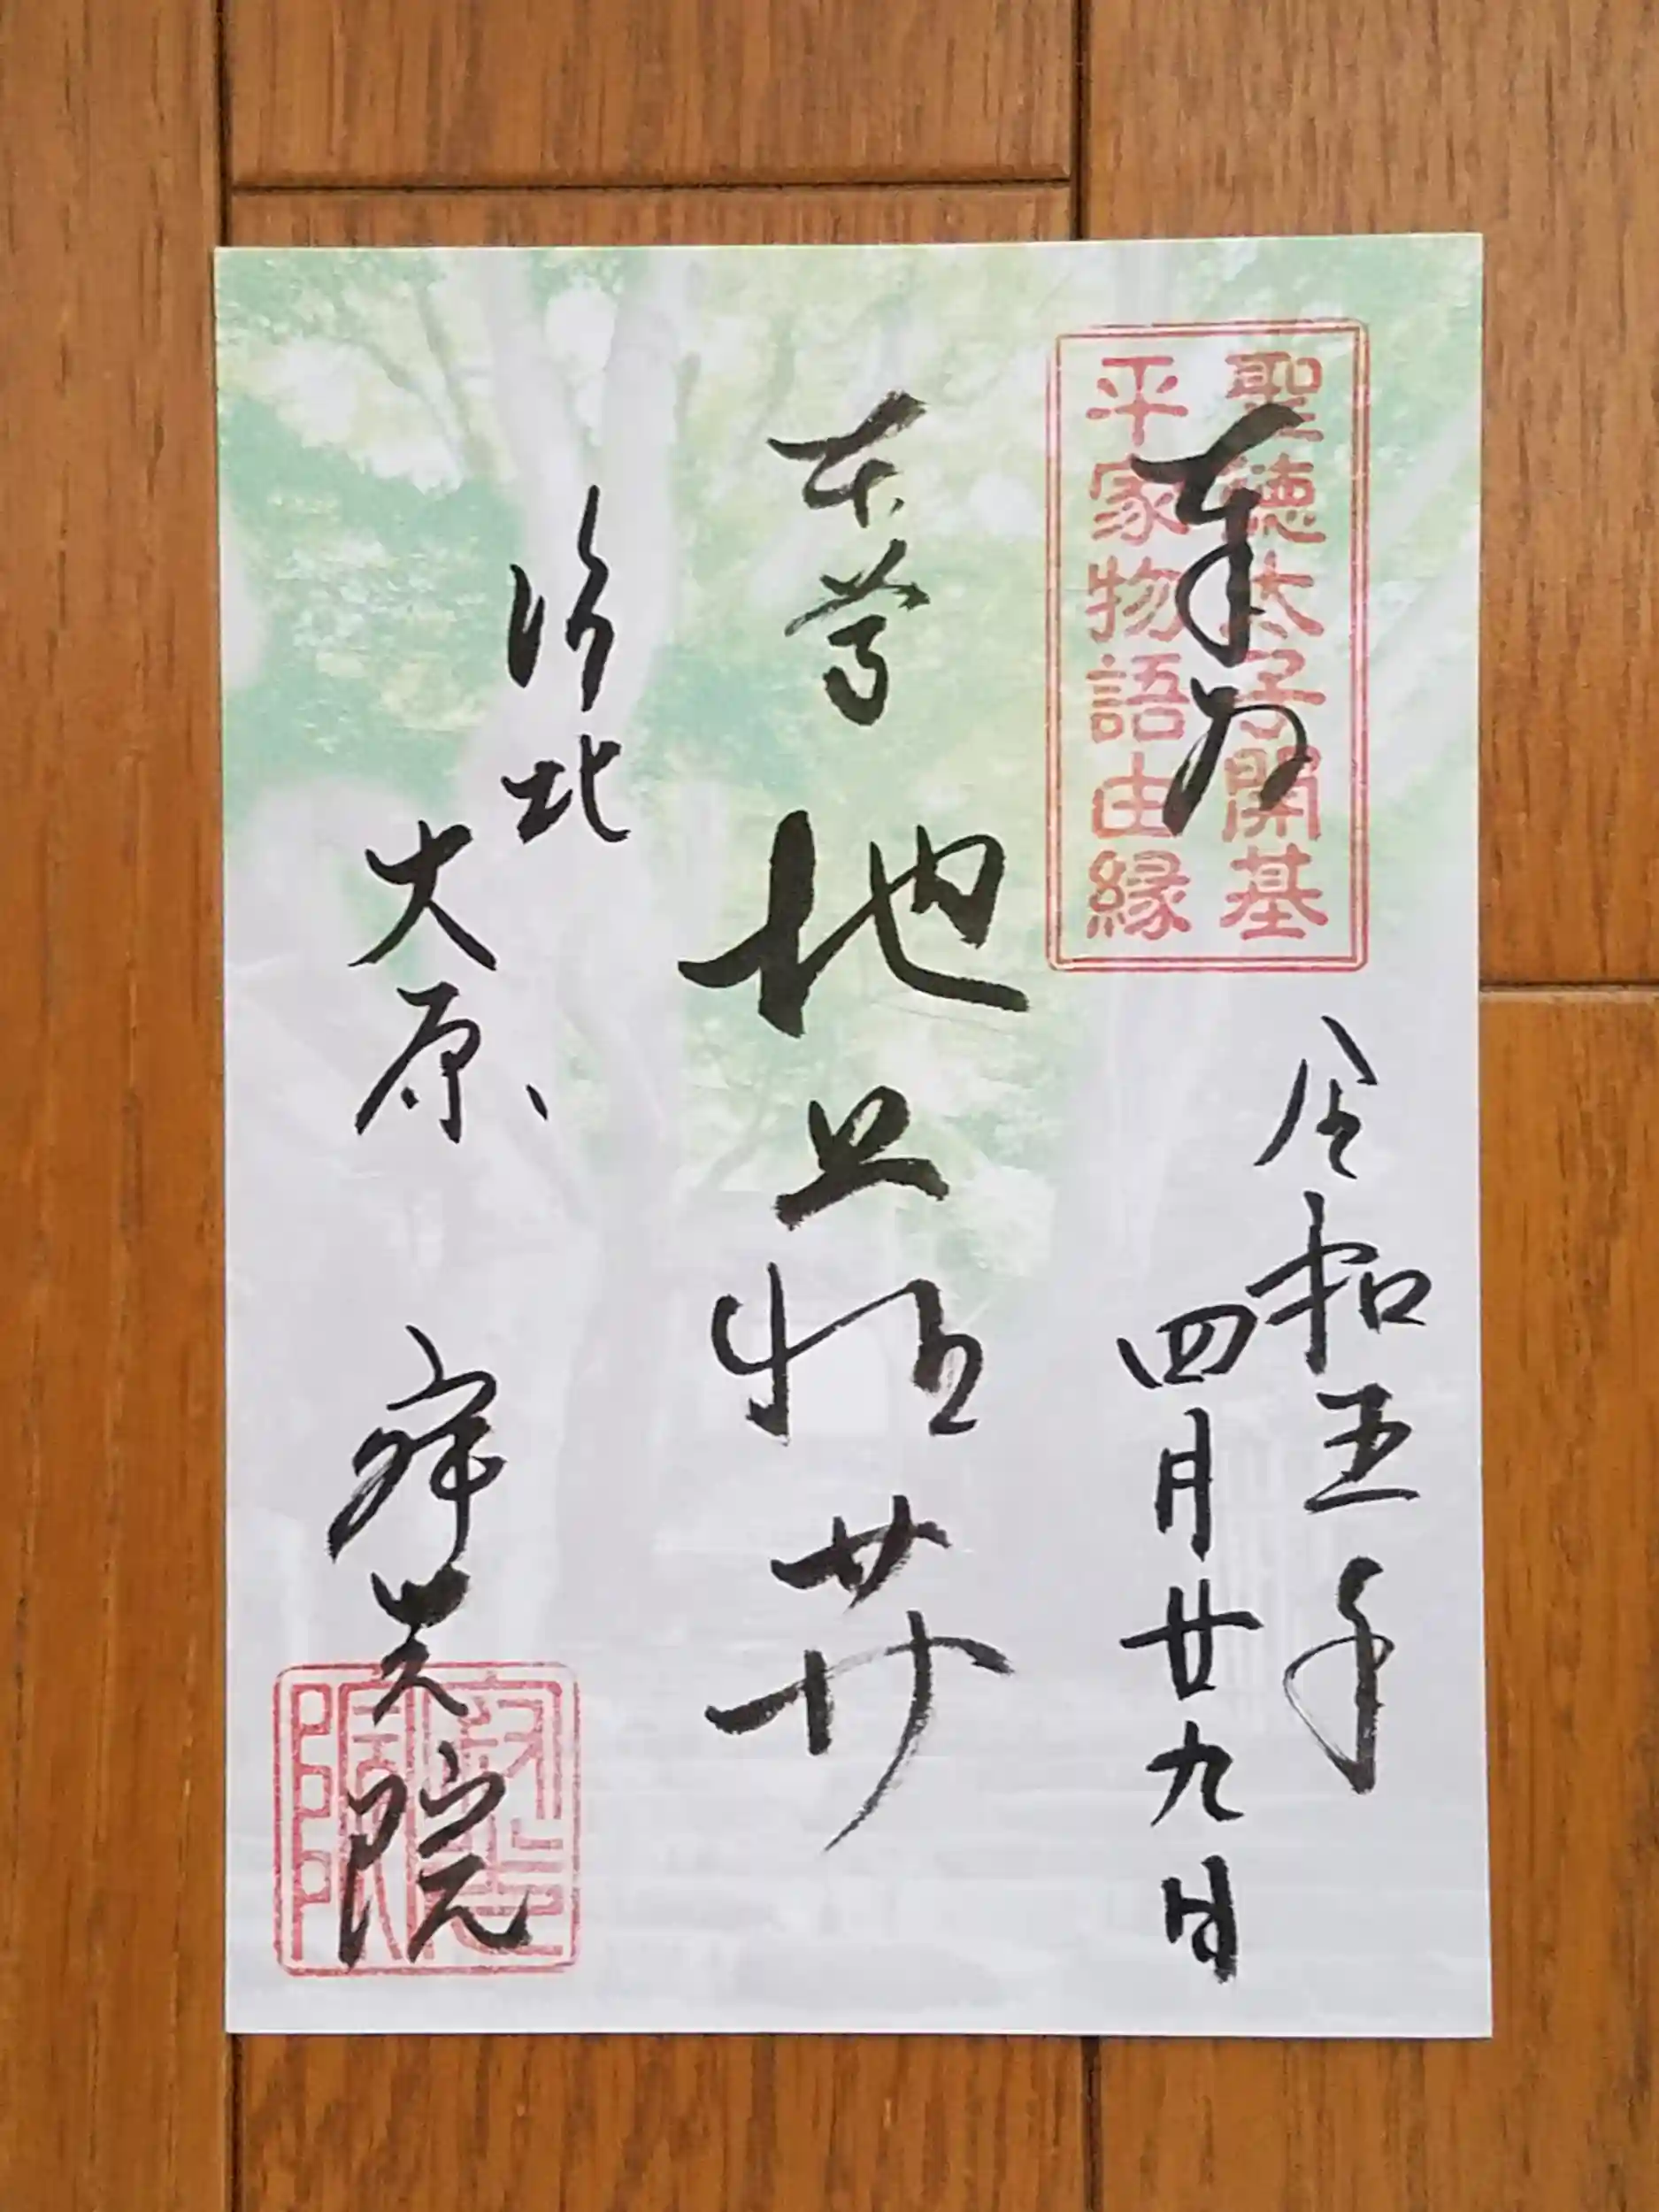 聖徳太子開基
平家物語由縁
奉拝
令和五年
四月廿九日
本尊
地 𦬇
洛北
大原
寂光院
寂光院